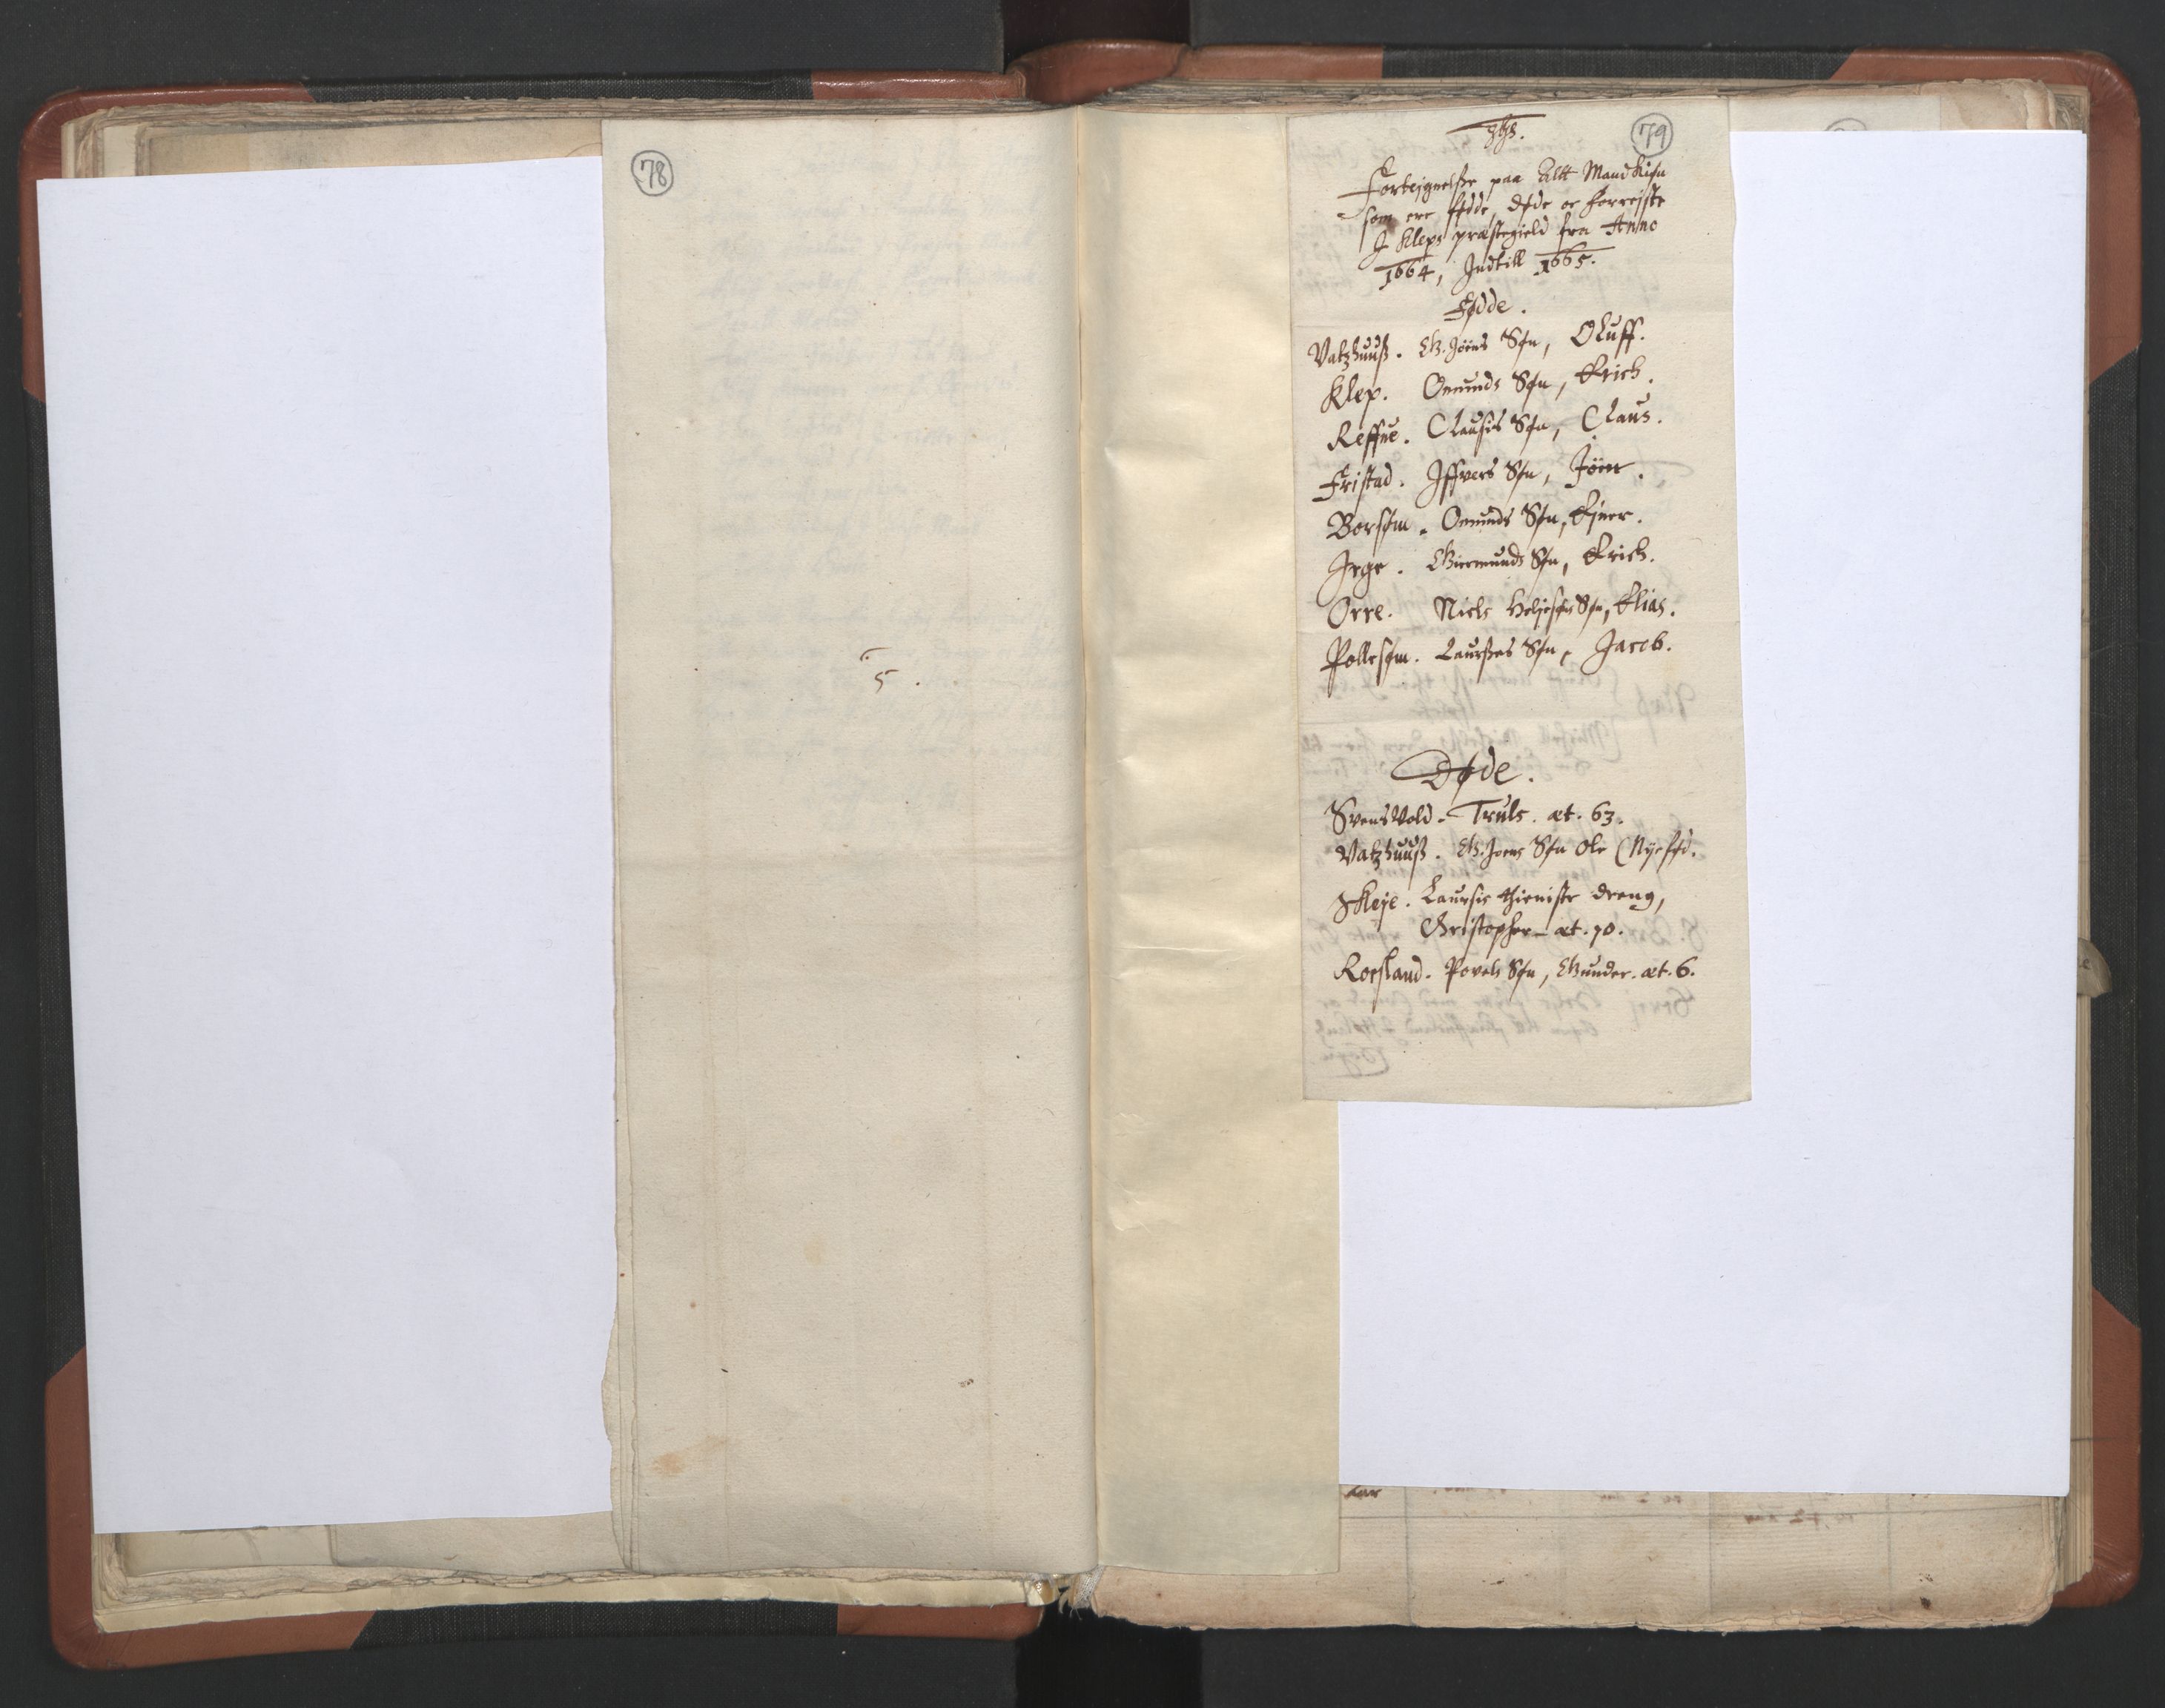 78
5.
79
Forteignelsse paa Altt Mandkiøn
som ere fødde, døde oc forrejste
J Kleps præstegield fra Anno
1664, Indtill 1665.
Fødde.
Vatzhuuß. Joens Søn, Oluff.
Klep. Omunds Søn, Erich.
Reffne. Clauses Søn, Claus.
Fristad. Iffvers Søn, Jöen.
Borsøm. Omunds Søn, Ejner.
Jrge. Giermunds Søn, Erich.
Orre. Niels Heljesøns Søn, Elias.
Pollesøm. Laurßes Søn, Jacob.
Døde.
SvensVold. Truls. æt. 63.
Vatzhuuß. Joens Søn Ole (Nyefød.
Skeje. Laursis thieniste dreng,
Christopher æt. 70.
Roesland. Povels Søn, Gunder. æt. 6.